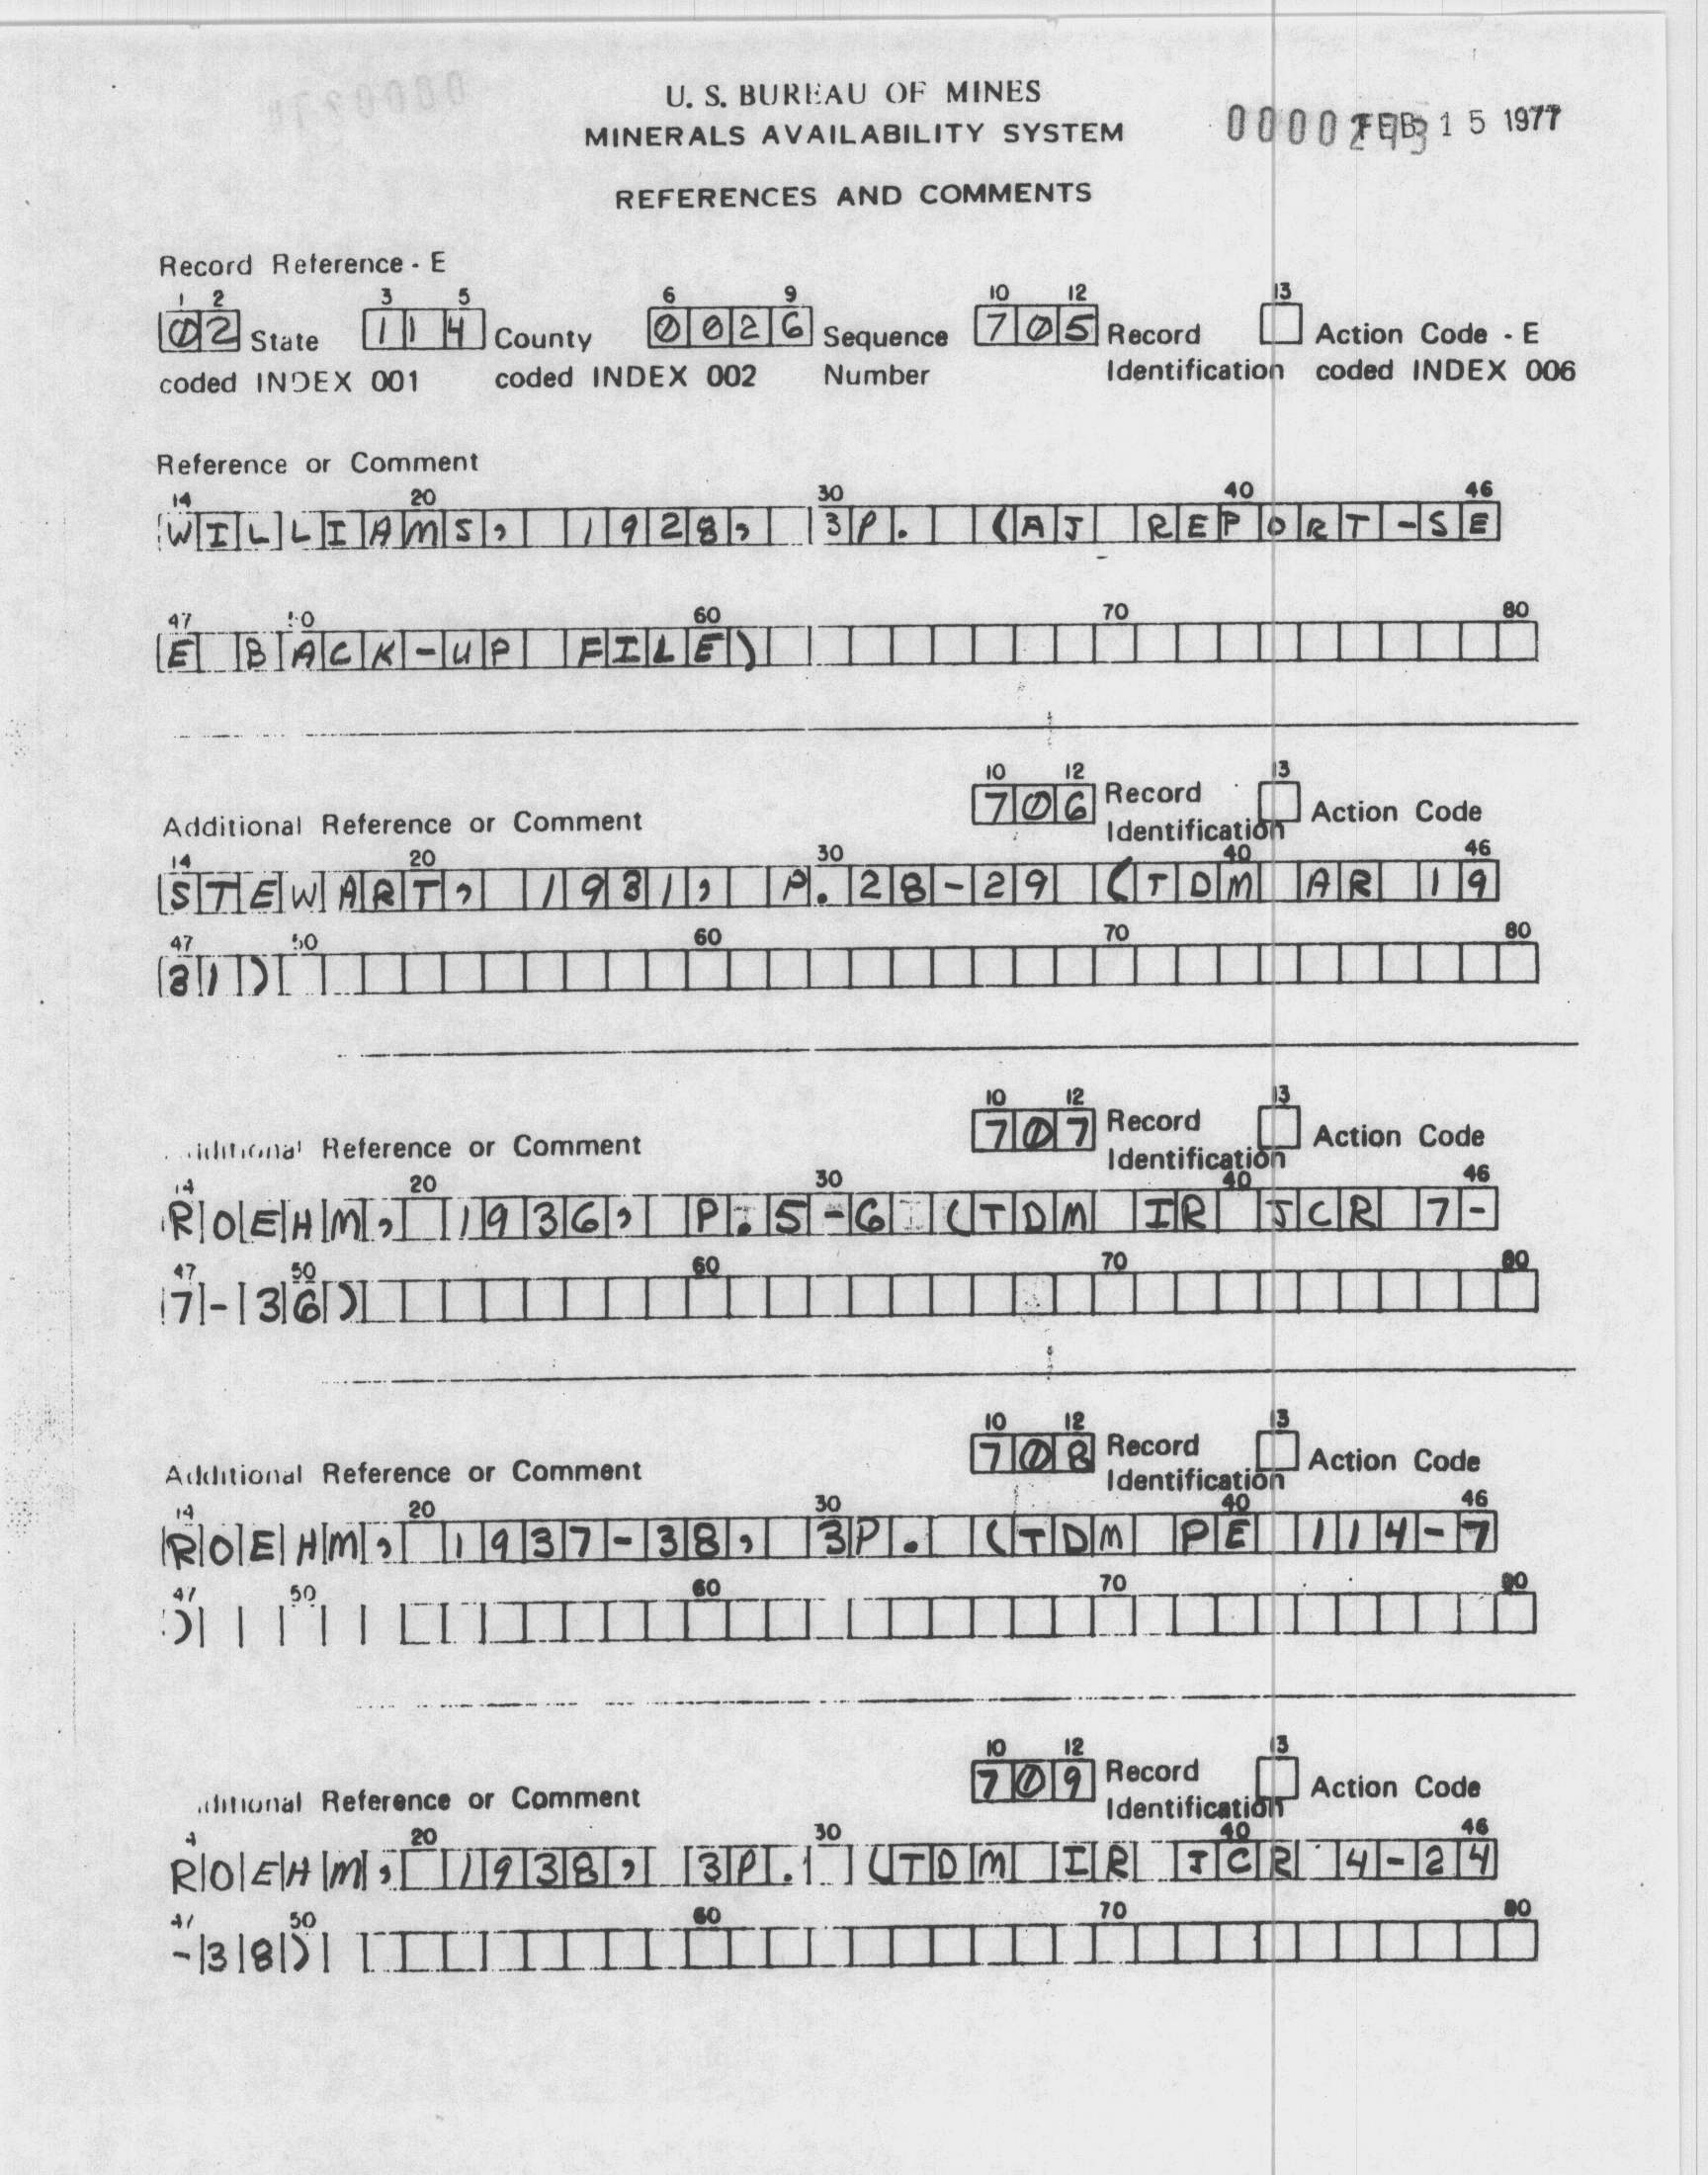 U. S. BUREAU OF MINES
MINERALS AVAILABILITY SYSTEM
FEB 15 1977
REFERENCES AND COMMENTS
Record Reference - E
1 2 3 5 6 9 10 12 13
02 State 114 County 0026 Sequence 705 Record Action Code - E
coded INDEX 001 coded INDEX 002 Number Identification coded INDEX 006
Reference or Comment
14 20 30 40 46
WILLIAMS, 1928, 3P. (AJ REPORT-SE
47 50 60 70 80
E BACK-UP FILE)
10 12 13
706 Record Action Code
Additional Reference or Comment Identification
14 20 30 40 46
STEWART, 1931, P.28-29 (TDM AR 19
47 50 60 70 80
31)
10 12 13
707 Record Action Code
Additional Reference or Comment Identification
14 20 30 40 46
ROEHM, 1936, P.5-6 (TDM IR JCR 7-
47 50 60 70 80
7-36)
10 12 13
708 Record Action Code
Additional Reference or Comment Identification
14 20 30 40 46
ROEHM, 1937-38, 3P. (TDM PE 114-7
47 50 60 70 80
)
10 12 13
709 Record Action Code
ditional Reference or Comment Identification
4 20 30 40 46
ROEHM, 1938, 3P. (TDM IR JCR 4-24
47 50 60 70 80
-38)